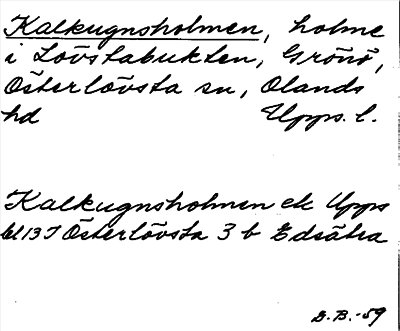 Kalkugnsholmen, holme
i Lövstabukten, Grönö,
Österlövsta sn, Olands
hd Upps. l.
Kalkugnsholmen ek Upps
bl 13 J Österlövsta 3 b Edsätra
E.B.-59